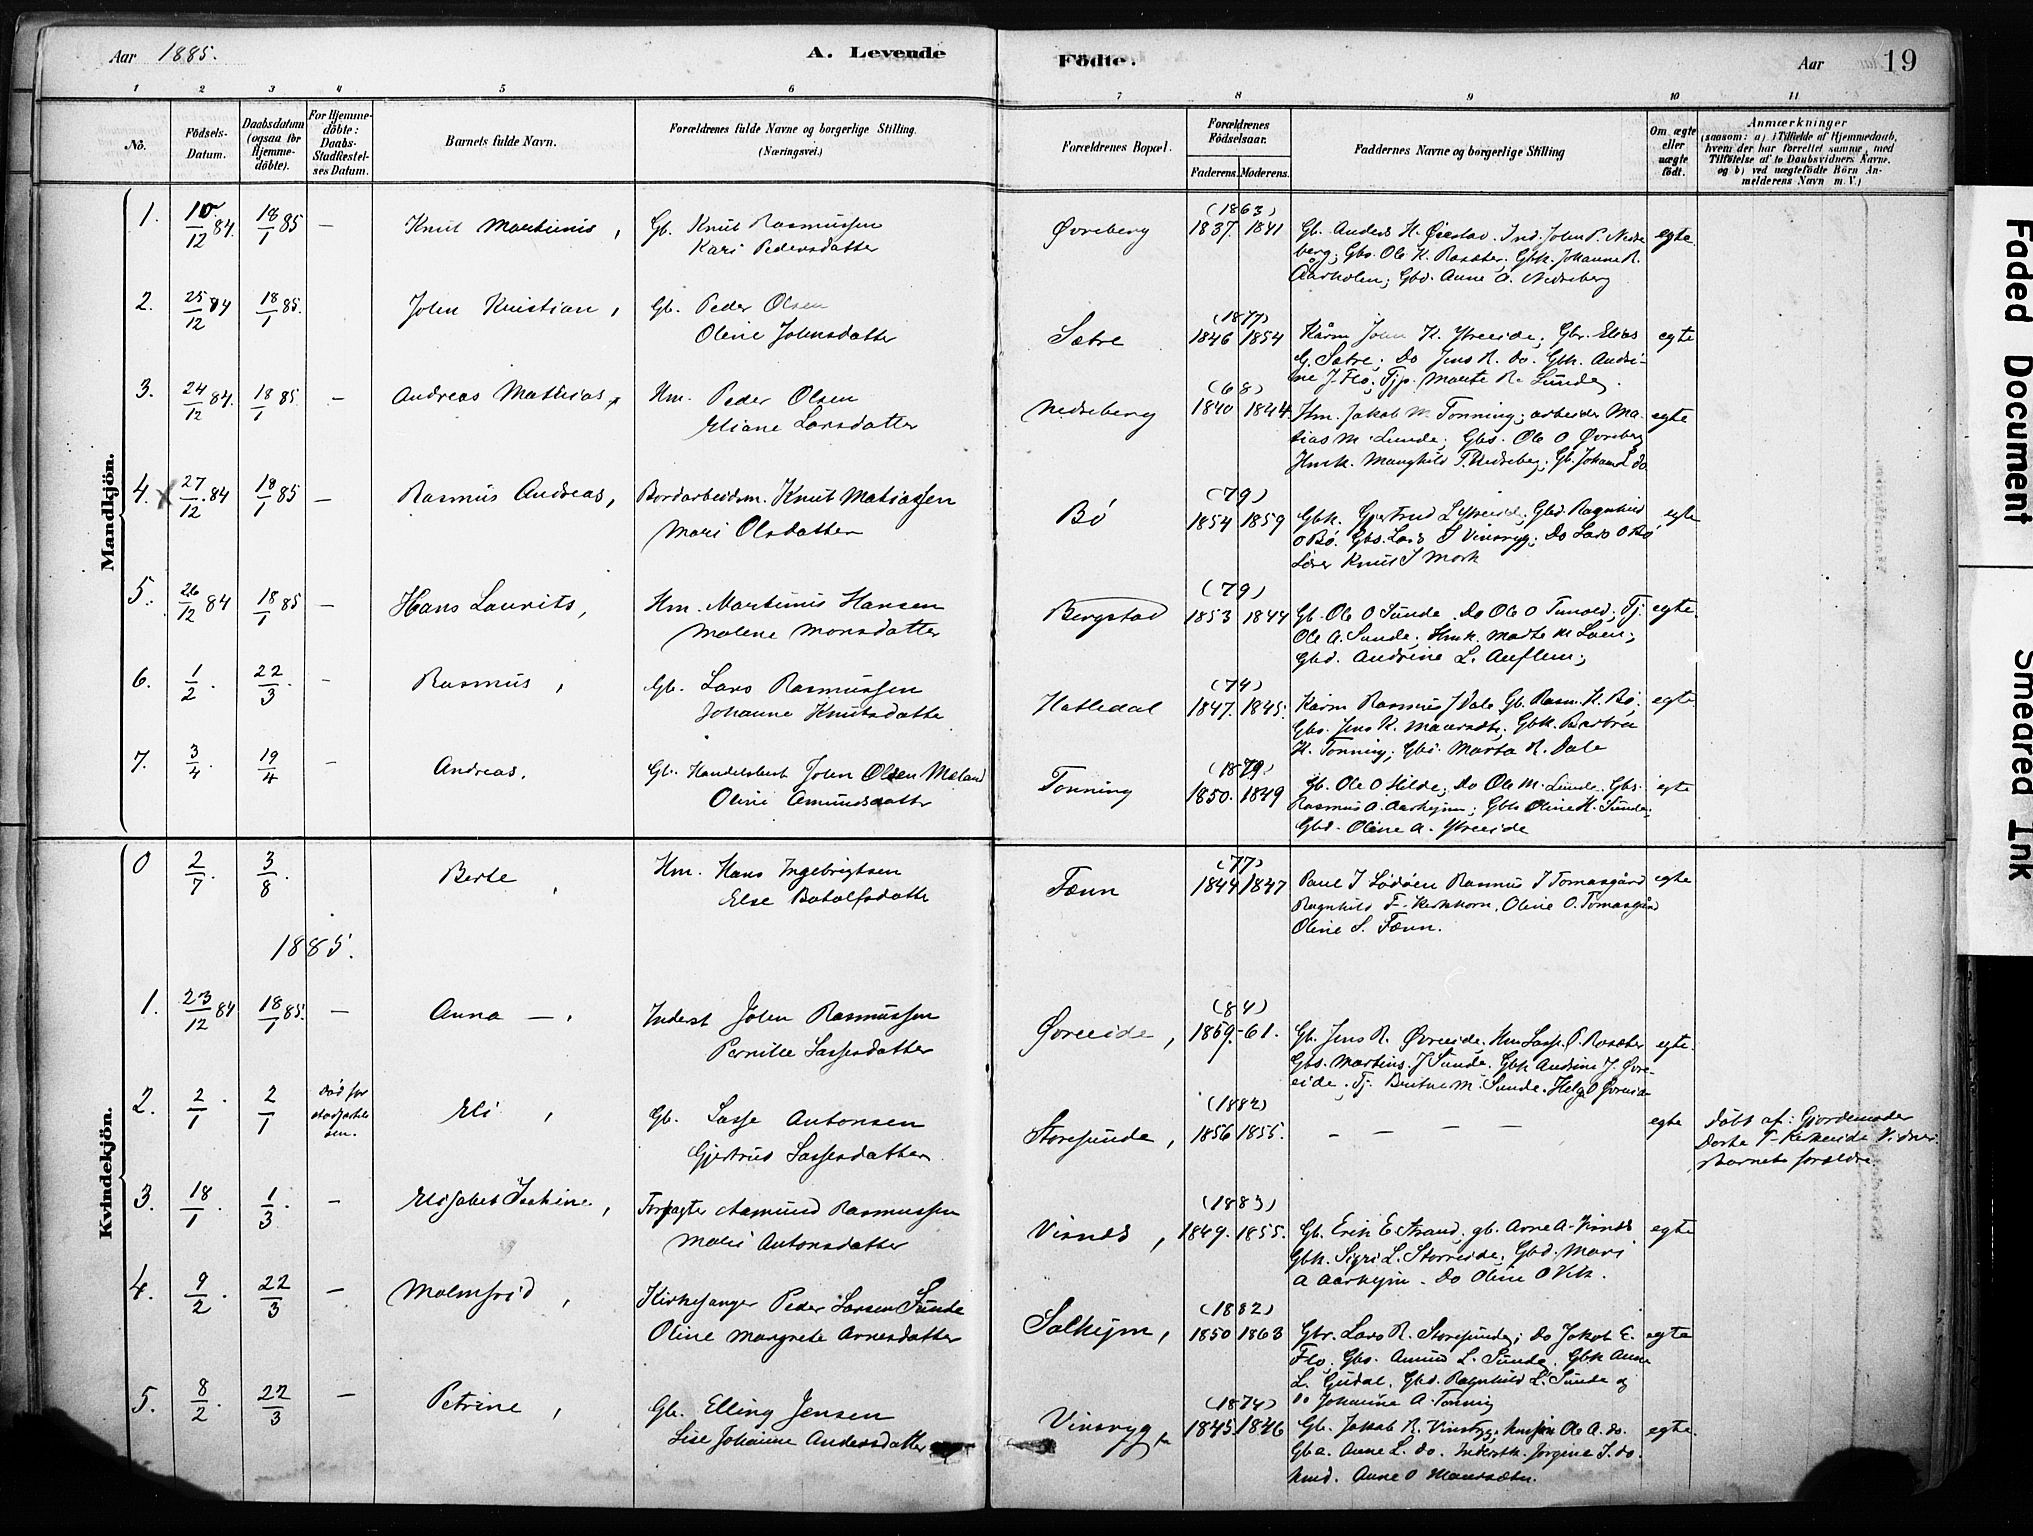 Aar 1885. A. Levende Födte. Aar 19
1 2 3 4 5 6 7 8 9 10 11
No.
Födsels-Datum.
Daabsdatum (ogsaa for Hjemme-döbte).
For Hjemme-döbte: Daabs-Stadfæstel-ses Datum.
Barnets fulde Navn.
Forældrenes fulde Navne og borgerlige Stilling.
(Næringsvei.)
Forældrenes Bopæl.
Forældrenes Födselsaar.
Faderens. Moderens.
Faddernes Navne og borgerlige Stilling
Om ægte eller uægte födt.
Anmærkninger
saasom: a) i Tilfælde af Hjemmedaab,
hvem der har forrettet samme, med
Tilföielse af to Daabsvidners Navne.
og b) ved uægtefödte Börn An-
melderens Navn m. V.)
Mandkjön.
1. 10/12 84. 18/1 85 – Knut Martinus, Gb. Knut Rasmussen
Kari Pedersdatter
Øvreberg (1863) 1837. 1841
Gb. Anders K. Ind. John P. Nedre
berg; Gbs. Ole K. Gbk. Johanne R.
Aarholen; Gbd. Anne A. Nedreberg
egte
2. 25/12 84 18/1 85. – John Kristian, Gb. Peder Olsen
Oline Johnsdatter
Sætre (1877) 1846 1854
Kårm John K. Ytreeide; Gbr. Elias
G. Sætre; Do Jens R. do. Gbk. Andri-
ne J. Flo; Tjp. Marte R. Sunde.
egte
3. 24/12 84. 18/1 85 – Andreas Mathias, Hm. Peder Olsen
Eliane Larsdatter
Nedreberg (68) 1840 1844.
Hm. Jakob M Tonning; arbeider Ma-
tias M. Lunde; Gbs. Ole O Øvreberg
Hmk. Manghild P. Nedreberg; Gb. Johan L do
egte
4. x 27/12 84 18/1 85 – Rasmus Andreas, Bordarbeidsm. Knut Matiassen
Mari Olsdatter
Bø (79) 1854 1859
Gbk. Gjertrud L Ytreeide; Gbd. Ragnhild
O Bø. Gbs. Lars J Vinsryg; Do Lars O Bø
Lærer Knut J Mork
egte
5. 26/12 84 18/1 85 – Hans Laurits, Hm. Martinus Hansen
Malene Monsdatter
Bergstad (79) 1853 1844
Gb. Ole O Sunde. Do Ole O Tunold; Tj.
Ole A. Sunde; Hmk. Marte M Loen;
Gbd. Andrine L. Auflem;
egte.
6. 1/2. 22/3. – Rasmus, Gb. Lars Rasmussen
Johanne Knutsdatter
Hatledal (74) 1847. 1845.
Kårm Rasmus J Dale Gb. Rasm. K. Bø;
Gbs. Jens K. Gbk. Barbra
K. Tonning; Gbd. Marta R. Dale
egte
7. 3/4. 19/4 – Andreas, Gb. Handelsbest John Olsen Meland
Oline Amundsdatter
Tonning (1879) 1850. 1849
Gb. Ole O Hilde; Do Ole M. Lunde. Gbs.
Rasmus A. Aarheim; Gbk Oline K. Sunde;
Gbd. Oline A. Ytreeide
egte
Kvindekjön.
0 2/7. 3/8. Berte, Hm. Hans Ingebrigtsen
Else Botolfsdatter
Fænn (77) 1844 1847
Paul J Lødøen Rasmus J Tomasgård
Ragnhild T. Kirkhorn, Oline O. Tomasgård
Oline S. Fænn.
egte
1885.
1. 23/12 84 18/1 85. – Anna –, Inderst John Rasmussen
Pernille Lassesdatter
Øvreeide, (84) 1859.-61.
Gb. Jens R. Øvreeide. Hm Lasse P. Rosæter
Gbs. Martins J Sunde. Gbk Andrine J. Øvre-
eide; Tj. M. Sunde. Helge O Øvreeide
egte.
2. 2/1. 2/1 Død før
stadfæstel
sen.
Eli, Gb. Lasse Antonsen
Gjertrud Lassesdatter
Storesunde, (1882) 1856 1855.
– – – –
egte
Døbt af: Gjordemoder
Dorte T. Vidner:
Barnets forældre.
3. 18/1. 1/3. – Elisabet Isakine, Forpagter Aamund Rasmussen
Malii Antonsdatter
Visnes, (1883) 1849. 1855.
Gb. Erik E Strand; gb. Arne A. Visnes
Gbk. Sigri L. Storeeide; Gbd. Mari
A Aarheim. Do Oline O Vik.
egte
4. 9/2. 22/3 – Malmfrid, Kirkesanger Peder Larsen Sunde
Oline Margrete Arnesdatter
Solheim, (1882) 1850 1863
Gbr. Lars R. Storesunde; do Jakob E.
Flo, Gbs. Amund L. Sunde. Gbk Anne
L. Gudal. Gbd. Ragnhild L. Sunde og
Do Johanne A. Tonning
egte
5. 8/2. 22/3 – Petrine, Gb. Elling Jensen
Lise Johanne Andersdatter
Vinsryg (1874) 1845 1846
Gb. Jakob R. Vinsryg; Ole A. do.
Gba. Anne L. do. Inderstk. Jorgine I. do.
Anne O
egte.
Faded Document
Smeared Ink